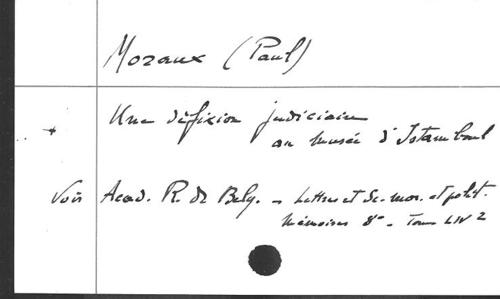 Moraux (Paul)
Une défixion judiciaire
au Musée d'Istamboul
Voir Acad. R. de Belg. - Lettres et Sc. mor. et polit.
Mémoires 8° - Tome LIV 2